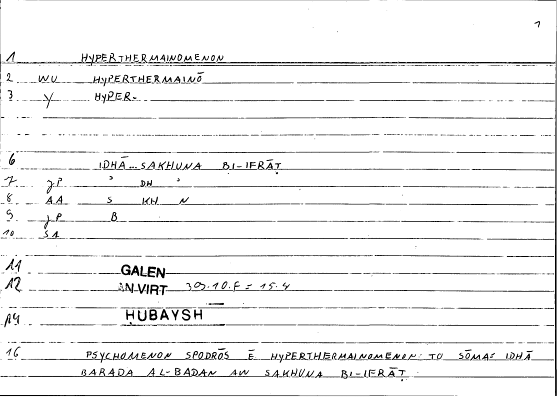 1
1 HYPERTHERMAINOMENON
2 WU HYPERTHERMAINŌ
3 Y HYPER-
6 IDHĀ...SAKHUNA BI-IFRĀṬ
7 JP ' DH '
8 AA S KH N
9 JP B
10 SA
A1 GALEN
A2 AN.VIRT 309.10.F = 15.4
A4 HUBAYSH
16 PSYCHOMENON SPODRŌS Ē HYPERTHERMAINOMENON TO SŌMA: IDHĀ
BARADA AL-BADAN AW SAKHUNA BI-IFRĀṬ